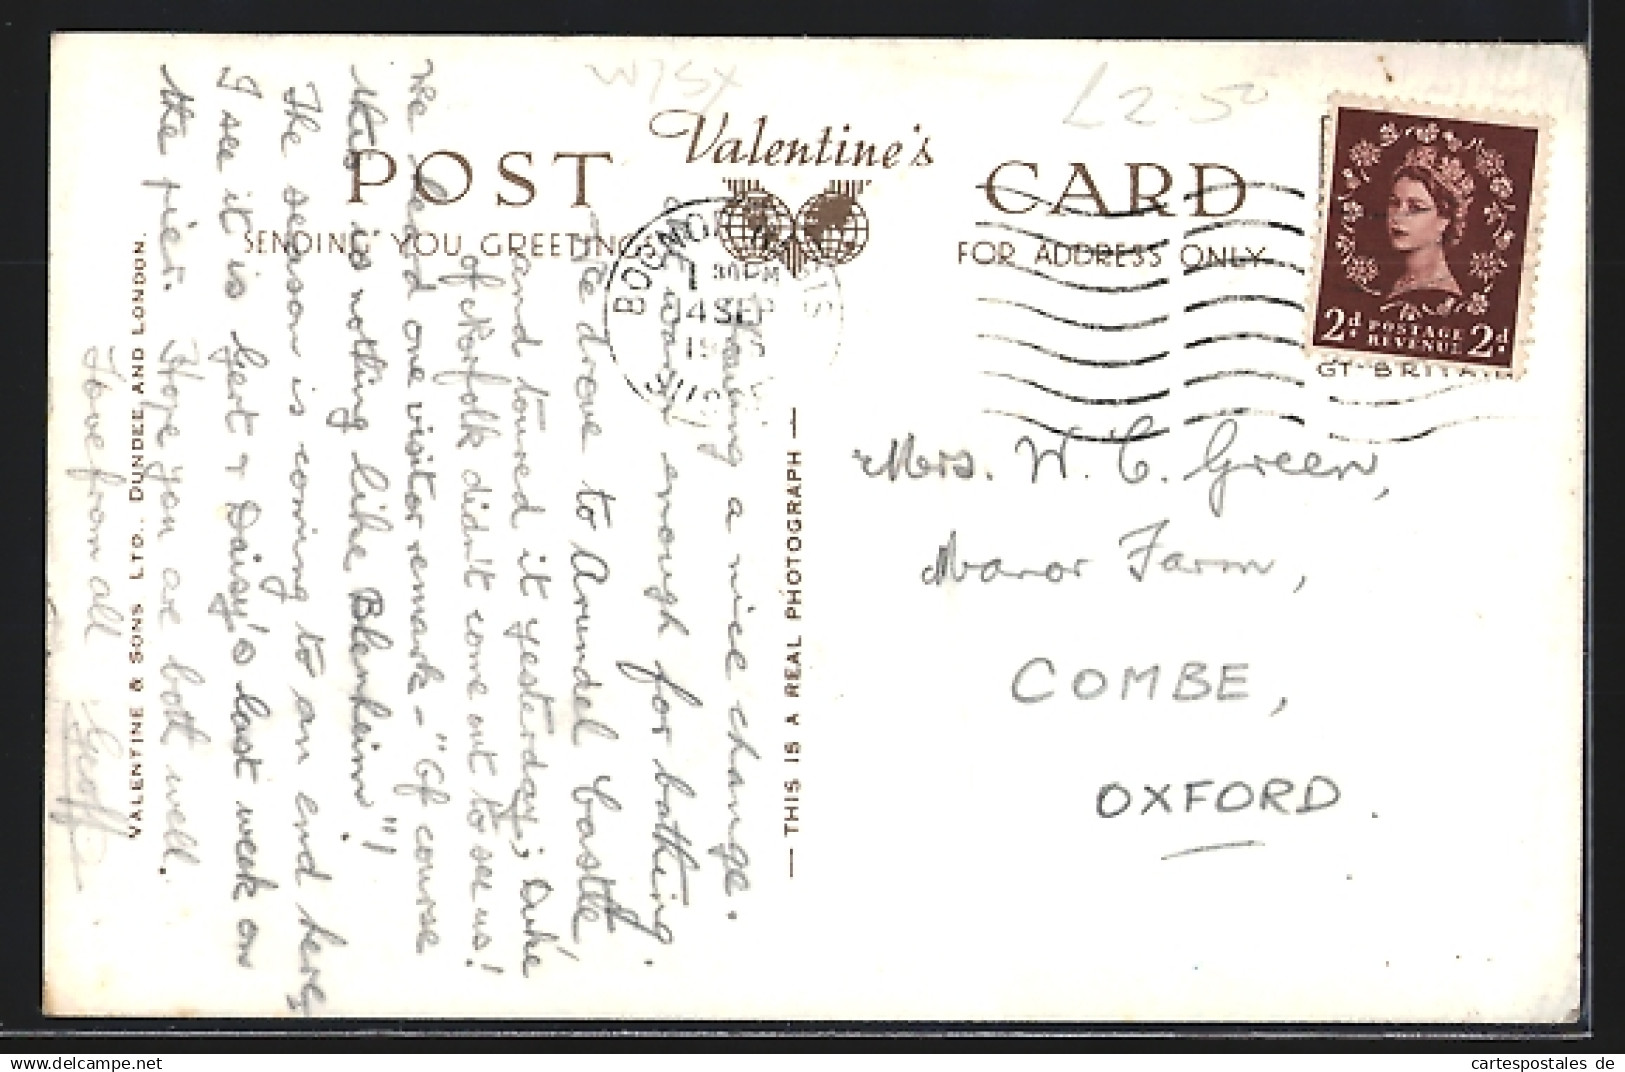 W/SX
£2.50
Valentine's
POST CARD
SENDING YOU GREETINGS
FOR ADDRESS ONLY
BOGNOR REGIS
30 PM
14 SEP
19
SUSS
2d. POSTAGE REVENUE 2d.
GT BRITAIN
Having a nice change.
warm enough for bathing.
We drove to Arundel Castle,
and toured it yesterday; Duke
of Norfolk didn't come out to see us!
We heard one visitor remark - "Of course
this is nothing like Blenheim"!
The season is coming to an end here,
I see it is Gert & Daisy's last week on
the pier. Hope you are both well.
Love from all Geoff
VALENTINE & SONS LTD., DUNDEE AND LONDON.
— THIS IS A REAL PHOTOGRAPH —
Mrs. W. C. Green,
Manor Farm,
COMBE,
OXFORD.
cartespostales de